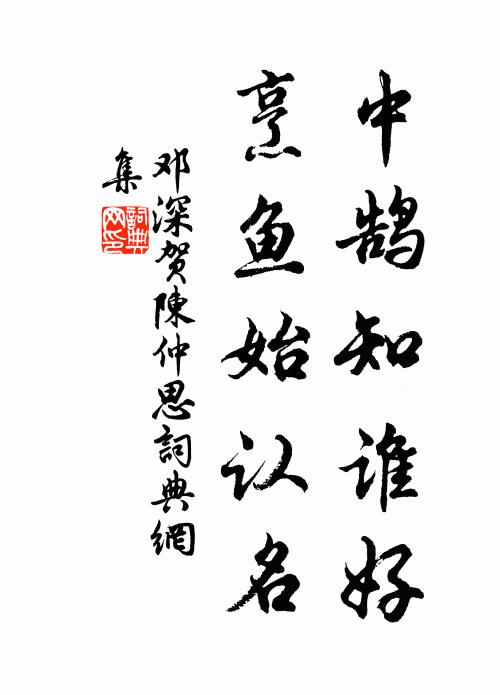 中鹄知谁好
烹鱼始认名
邓深贺陳仲思詞典網
集
詞典
网印